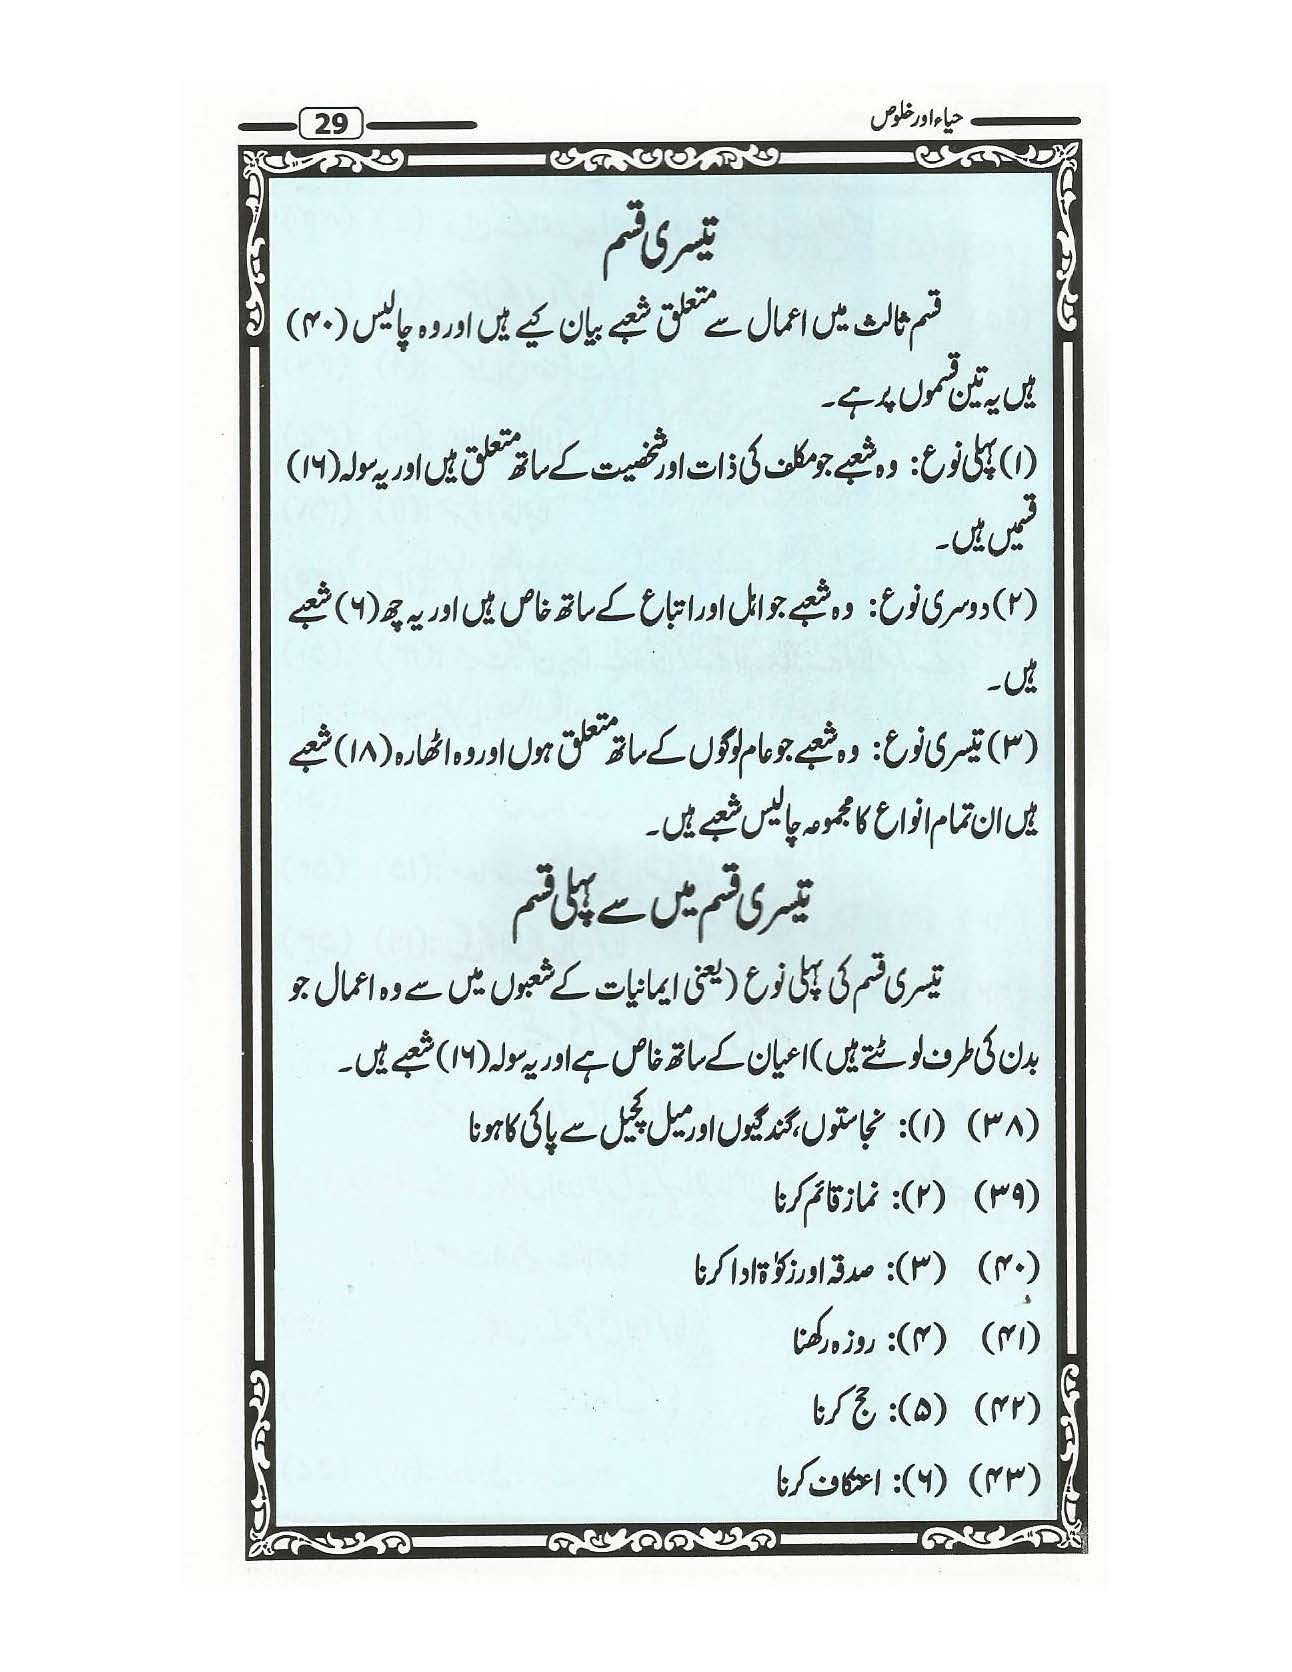 حیاء اور خلوص
29
تیسری قسم
قسم ثالث میں اعمال سے متعلق شعبے بیان کیے ہیں اور وہ چالیس (۴۰)
ہیں یہ تین قسموں پر ہے۔
(۱) پہلی نوع: وہ شعبے جو مکلف کی ذات اور شخصیت کے ساتھ متعلق ہیں اور یہ سولہ (۱۶)
قسمیں ہیں۔
(۲) دوسری نوع: وہ شعبے جو اہل اور اتباع کے ساتھ خاص ہیں اور یہ چھ (۶) شعبے
ہیں۔
(۳) تیسری نوع: وہ شعبے جو عام لوگوں کے ساتھ متعلق ہوں اور وہ اٹھارہ (۱۸) شعبے
ہیں ان تمام انواع کا مجموعہ چالیس شعبے ہیں۔
تیسری قسم میں سے پہلی قسم
تیسری قسم کی پہلی نوع (یعنی ایمانیات کے شعبوں میں سے وہ اعمال جو
بدن کی طرف لوٹتے ہیں) اعیان کے ساتھ خاص ہے اور یہ سولہ (۱۶) شعبے ہیں۔
(۳۸) (۱): نجاستوں، گندگیوں اور میل کچیل سے پاکی کا ہونا
(۳۹) (۲): نماز قائم کرنا
(۴۰) (۳): صدقہ اور زکوٰۃ ادا کرنا
(۴۱) (۴): روزہ رکھنا
(۴۲) (۵): حج کرنا
(۴۳) (۶): اعتکاف کرنا